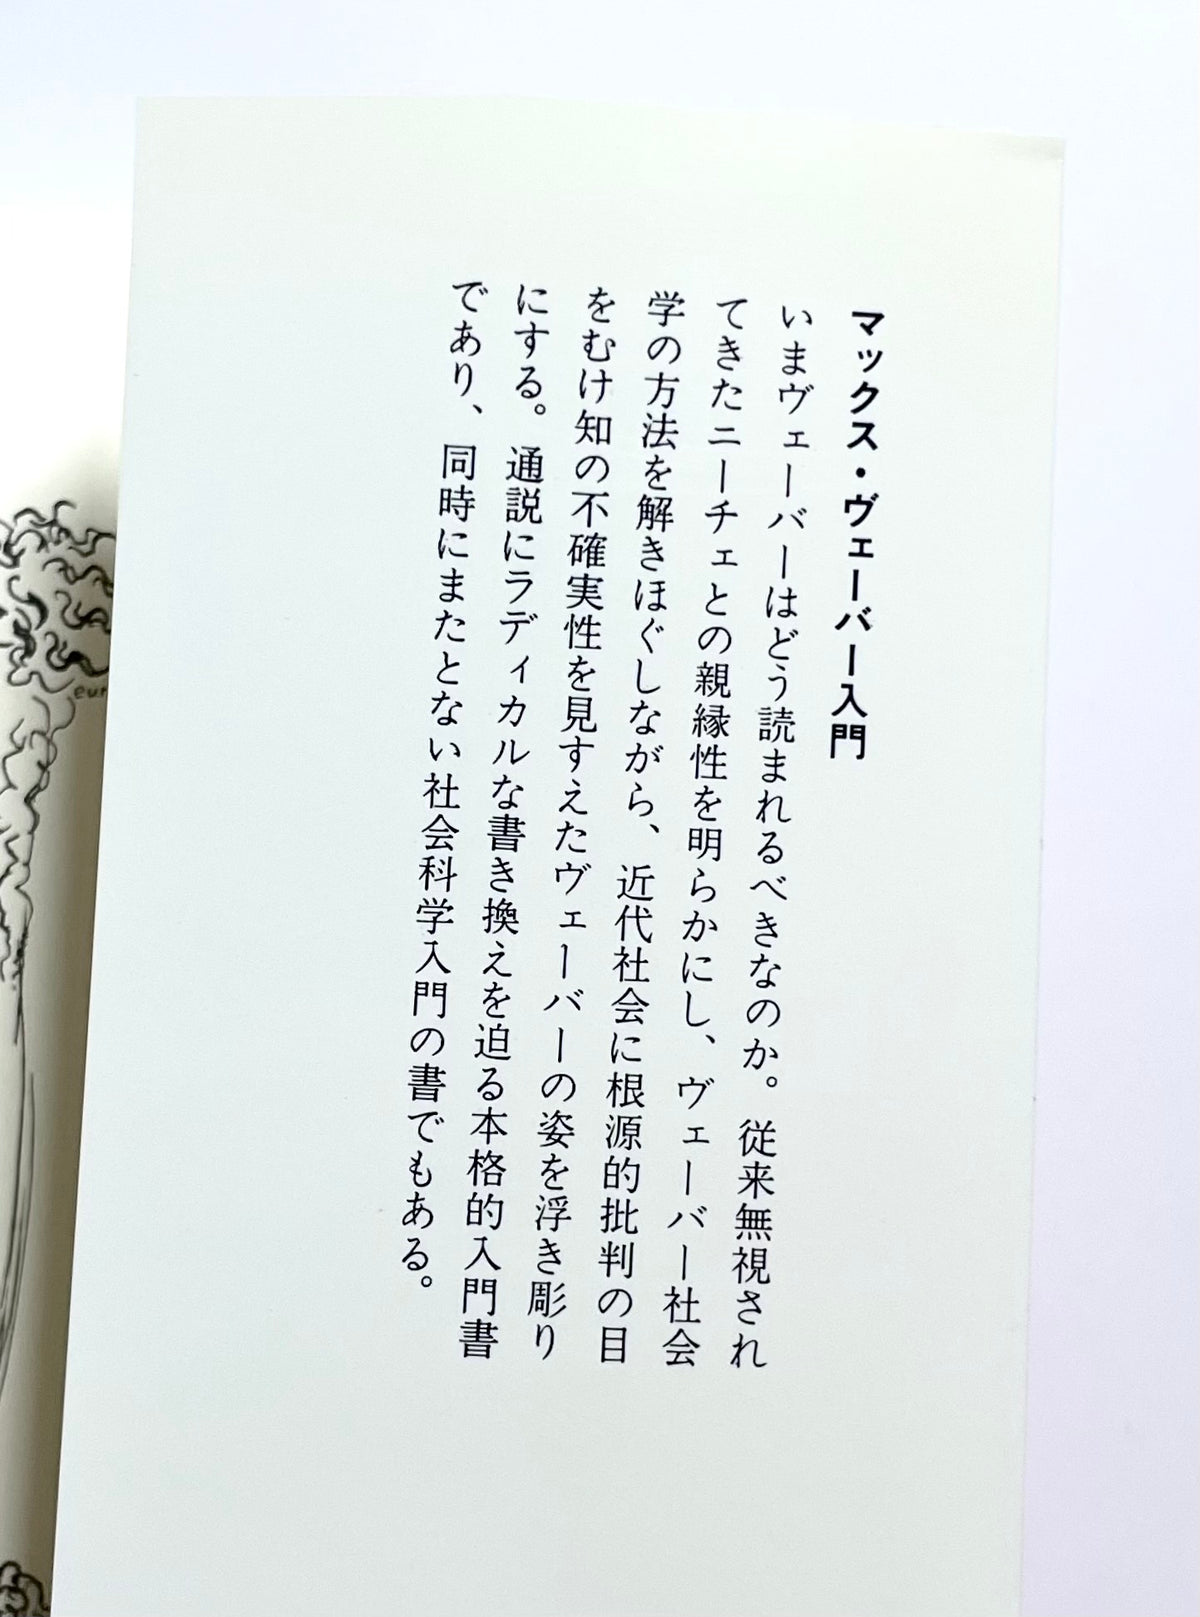 マックス・ヴェーバー入門
いまヴェーバーはどう読まれるべきなのか。従来無視され
てきたニーチェとの親縁性を明らかにし、ヴェーバー社会
学の方法を解きほぐしながら、近代社会に根源的批判の目
をむけ知の不確実性を見すえたヴェーバーの姿を浮き彫り
にする。通説にラディカルな書き換えを迫る本格的入門書
であり、同時にまたとない社会科学入門の書でもある。